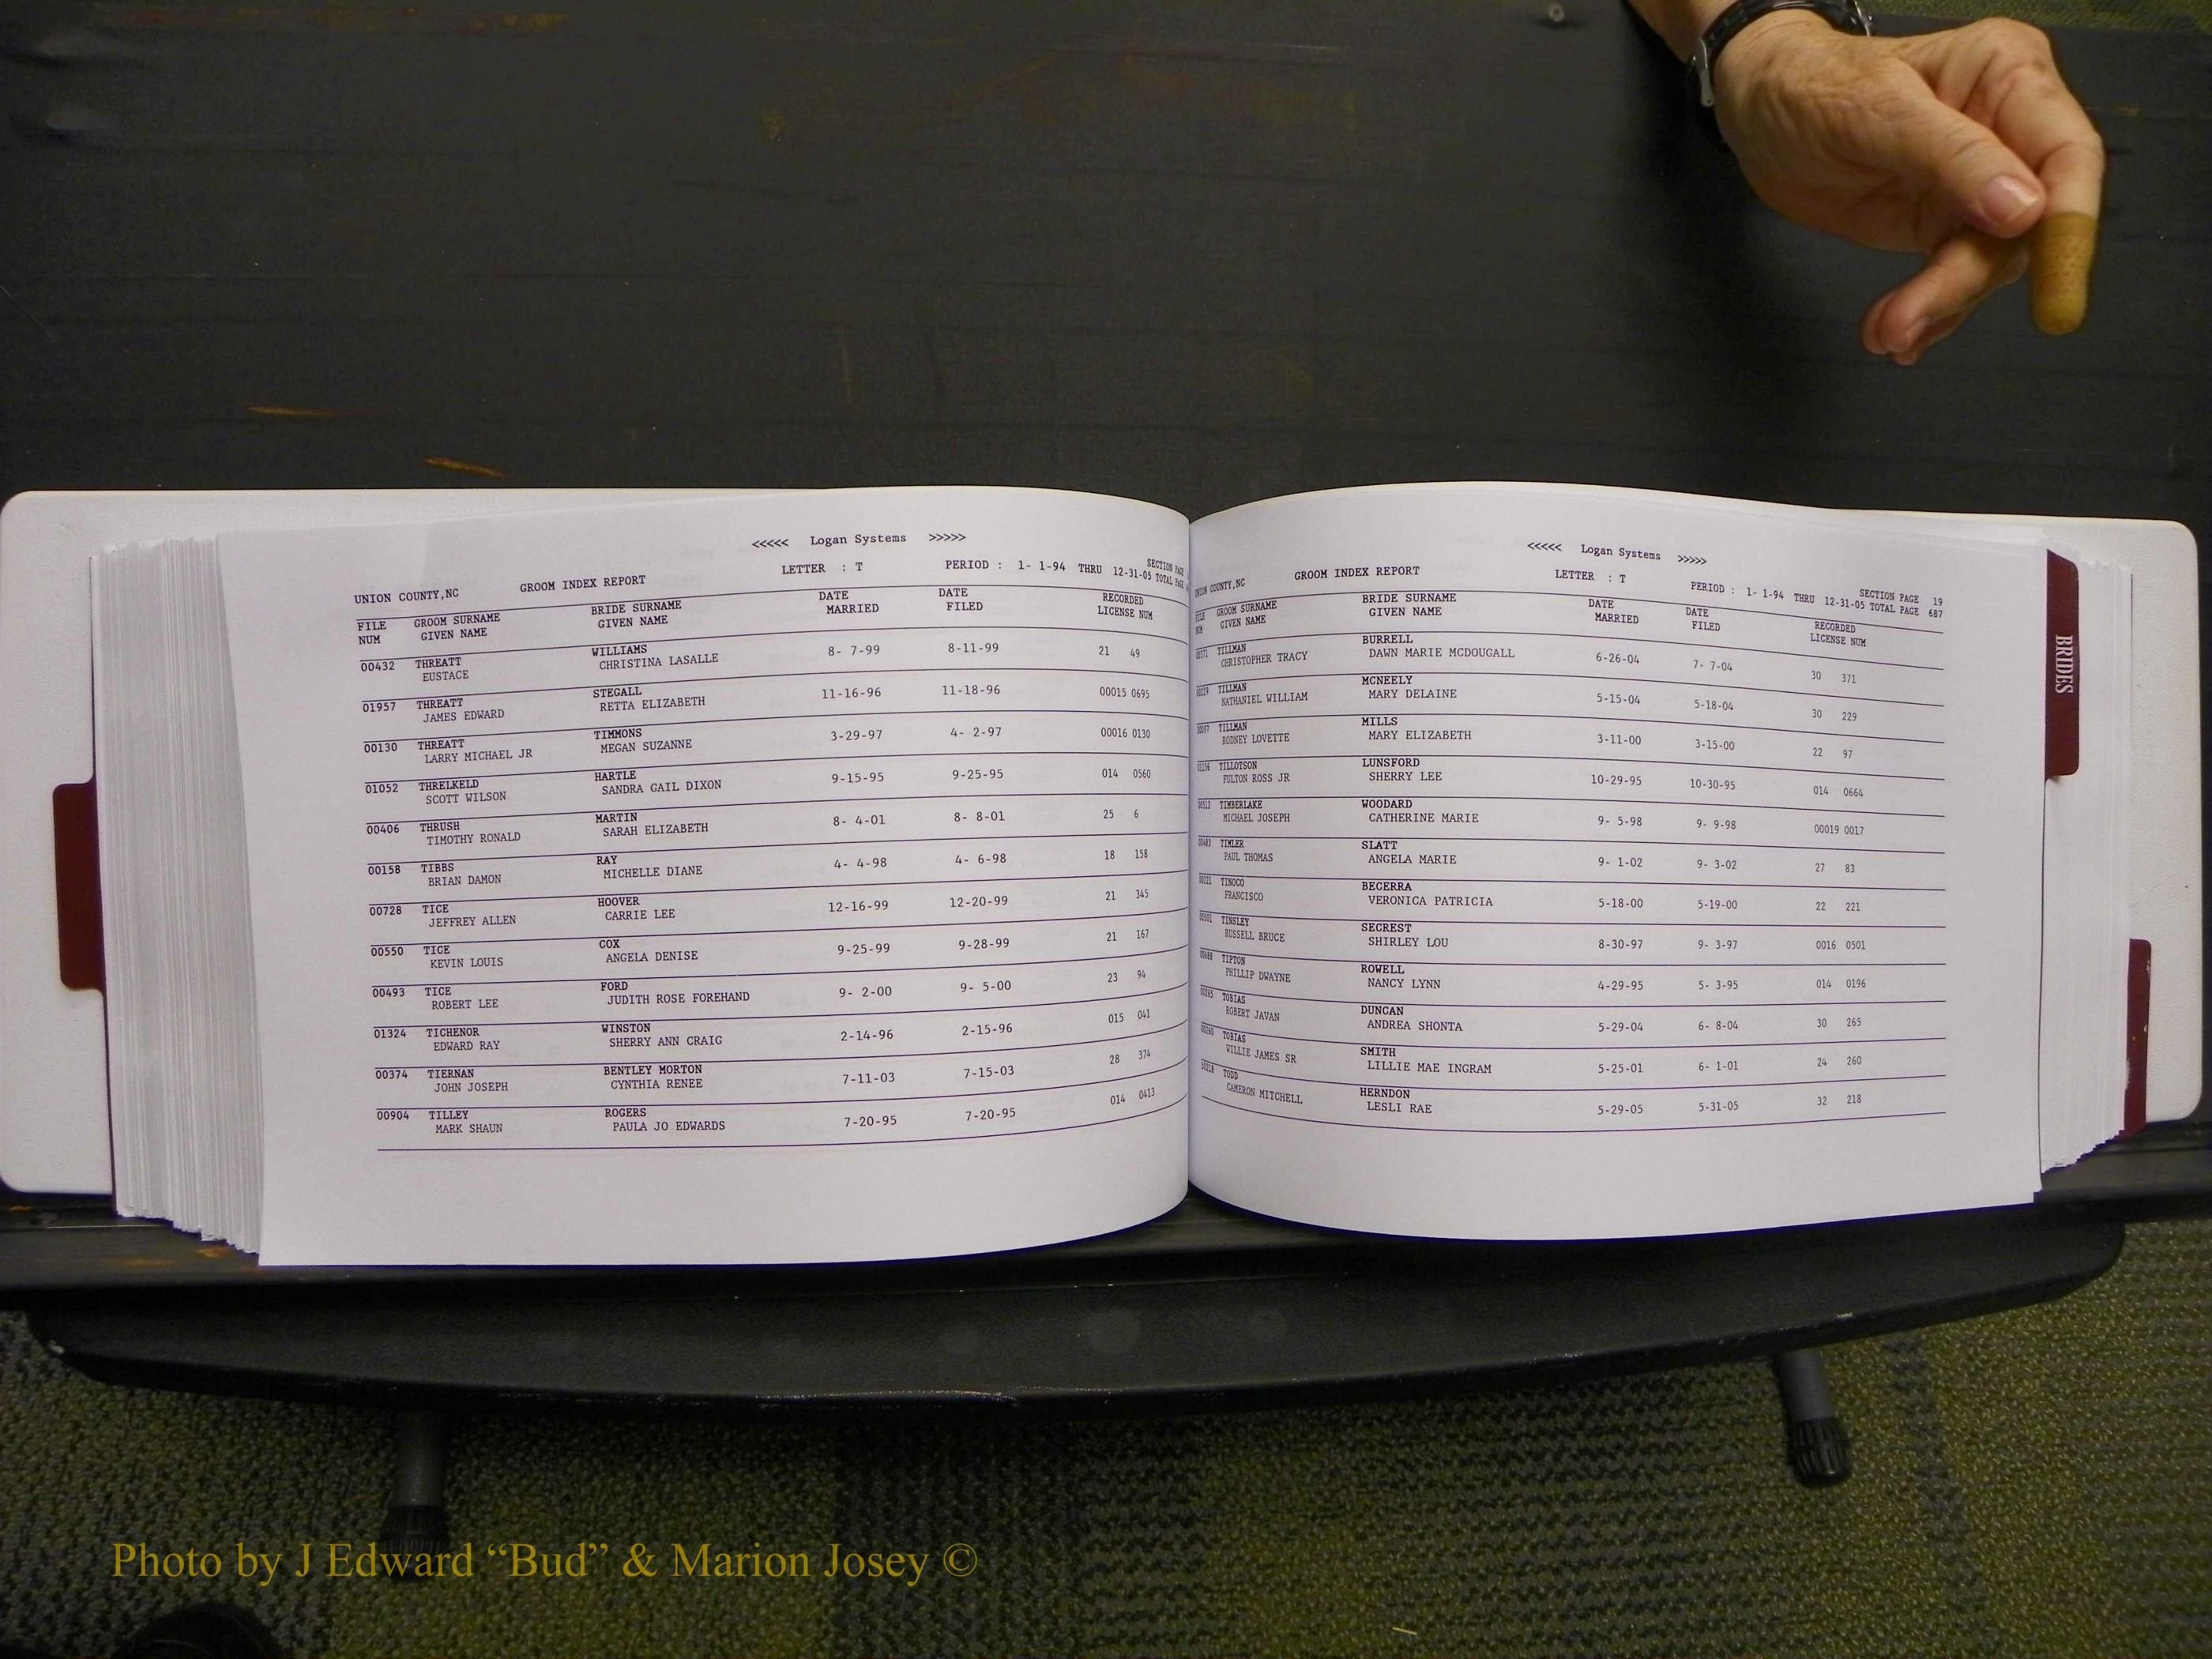 <<<<< Logan Systems >>>>>
UNION COUNTY,NC GROOM INDEX REPORT LETTER : T PERIOD : 1- 1-94 THRU 12-31-05 SECTION PAGE
TOTAL PAGE
FILE GROOM SURNAME BRIDE SURNAME DATE DATE RECORDED
NUM GIVEN NAME GIVEN NAME MARRIED FILED LICENSE NUM
00432 THREATT WILLIAMS 8- 7-99 8-11-99 21 49
EUSTACE CHRISTINA LASALLE
01957 THREATT STEGALL 11-16-96 11-18-96 00015 0695
JAMES EDWARD RETTA ELIZABETH
00130 THREATT TIMMONS 3-29-97 4- 2-97 00016 0130
LARRY MICHAEL JR MEGAN SUZANNE
01052 THRELKELD HARTLE 9-15-95 9-25-95 014 0560
SCOTT WILSON SANDRA GAIL DIXON
00406 THRUSH MARTIN 8- 4-01 8- 8-01 25 6
TIMOTHY RONALD SARAH ELIZABETH
00158 TIBBS RAY 4- 4-98 4- 6-98 18 158
BRIAN DAMON MICHELLE DIANE
00728 TICE HOOVER 12-16-99 12-20-99 21 345
JEFFREY ALLEN CARRIE LEE
00550 TICE COX 9-25-99 9-28-99 21 167
KEVIN LOUIS ANGELA DENISE
00493 TICE FORD 9- 2-00 9- 5-00 23 94
ROBERT LEE JUDITH ROSE FOREHAND
01324 TICHENOR WINSTON 2-14-96 2-15-96 015 041
EDWARD RAY SHERRY ANN CRAIG
00374 TIERNAN BENTLEY MORTON 7-11-03 7-15-03 28 374
JOHN JOSEPH CYNTHIA RENEE
00904 TILLEY ROGERS 7-20-95 7-20-95 014 0413
MARK SHAUN PAULA JO EDWARDS
<<<<< Logan Systems >>>>>
UNION COUNTY,NC GROOM INDEX REPORT LETTER : T PERIOD : 1- 1-94 THRU 12-31-05 SECTION PAGE 19
TOTAL PAGE 687
FILE GROOM SURNAME BRIDE SURNAME DATE DATE RECORDED
NUM GIVEN NAME GIVEN NAME MARRIED FILED LICENSE NUM
TILLMAN BURRELL 6-26-04 7- 7-04 30 371
CHRISTOPHER TRACY DAWN MARIE MCDOUGALL
TILLMAN MCNEELY 5-15-04 5-18-04 30 229
NATHANIEL WILLIAM MARY DELAINE
TILLMAN MILLS 3-11-00 3-15-00 22 97
RODNEY LOVETTE MARY ELIZABETH
TILLOTSON LUNSFORD 10-29-95 10-30-95 014 0664
FULTON ROSS JR SHERRY LEE
TIMBERLAKE WOODARD 9- 5-98 9- 9-98 00019 0017
MICHAEL JOSEPH CATHERINE MARIE
TIMLER SLATT 9- 1-02 9- 3-02 27 83
PAUL THOMAS ANGELA MARIE
TINOCO BECERRA 5-18-00 5-19-00 22 221
FRANCISCO VERONICA PATRICIA
TINSLEY SECREST 8-30-97 9- 3-97 0016 0501
RUSSELL BRUCE SHIRLEY LOU
TIPTON ROWELL 4-29-95 5- 3-95 014 0196
PHILLIP DWAYNE NANCY LYNN
TOBIAS DUNCAN 5-29-04 6- 8-04 30 265
ROBERT JAVAN ANDREA SHONTA
TOBIAS SMITH 5-25-01 6- 1-01 24 260
WILLIE JAMES SR LILLIE MAE INGRAM
TODD HERNDON 5-29-05 5-31-05 32 218
CAMERON MITCHELL LESLI RAE
BRIDES
Photo by J Edward “Bud” & Marion Josey ©